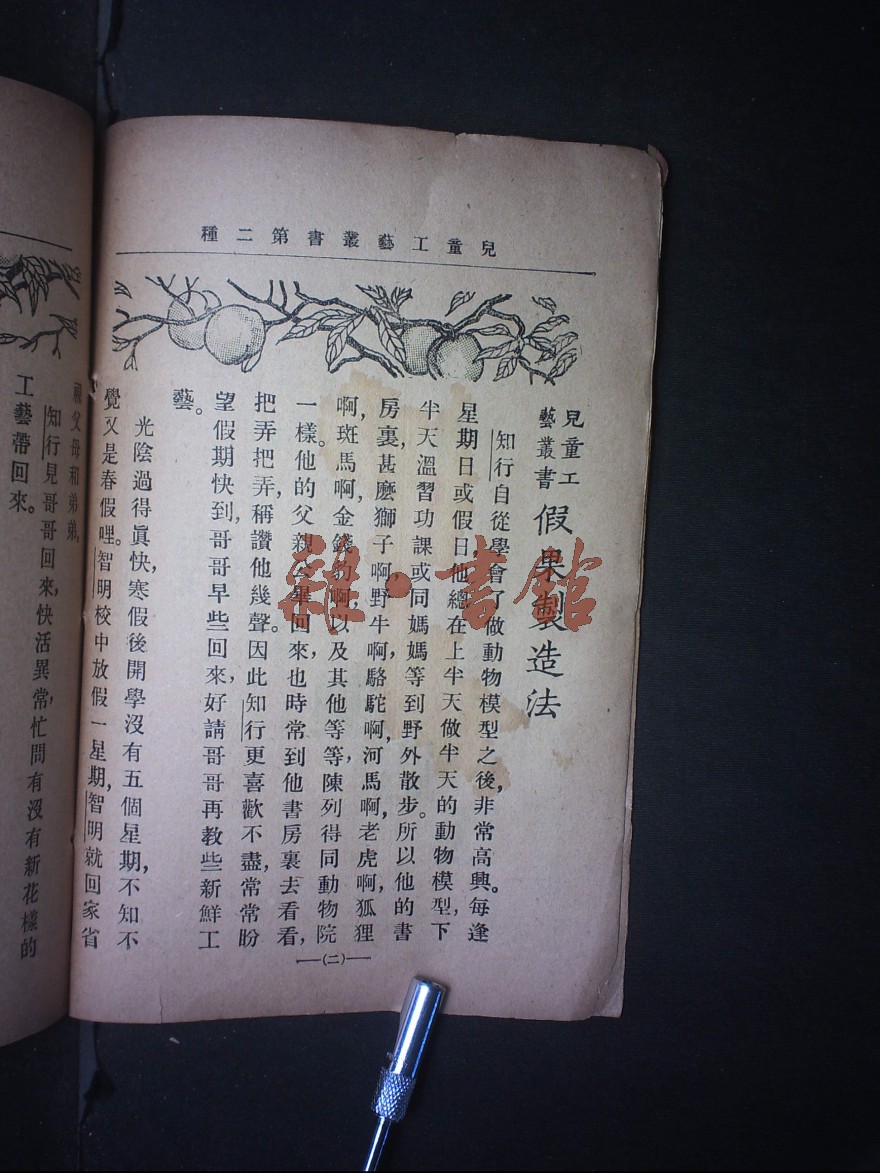 兒童工藝叢書第二種
兒童工
藝叢書
假果製造法
知行自從學會了做動物模型之後，非常高興。每逢
星期日或假日他總在上半天做半天的動物模型，下
半天溫習功課或同媽媽等到野外散步。所以他的書
房裏，甚麽獅子啊，野牛啊，駱駝啊，河馬啊，老虎啊，狐狸
啊，斑馬啊，金錢豹啊，以及其他等等，陳列得同動物院
一樣。他的父親公畢回來，也時常到他書房裏去看看，
把弄把弄，稱讚他幾聲。因此知行更喜歡不盡，常常盼
望假期快到，哥哥早些回來，好請哥哥再教些新鮮工
藝。
光陰過得眞快，寒假後開學沒有五個星期，不知不
覺又是春假哩。智明校中放假一星期，智明就回家省
（二）
視父母和弟弟。
知行見哥哥回來，快活異常，忙問有沒有新花樣的
工藝帶回來。
雜·書館